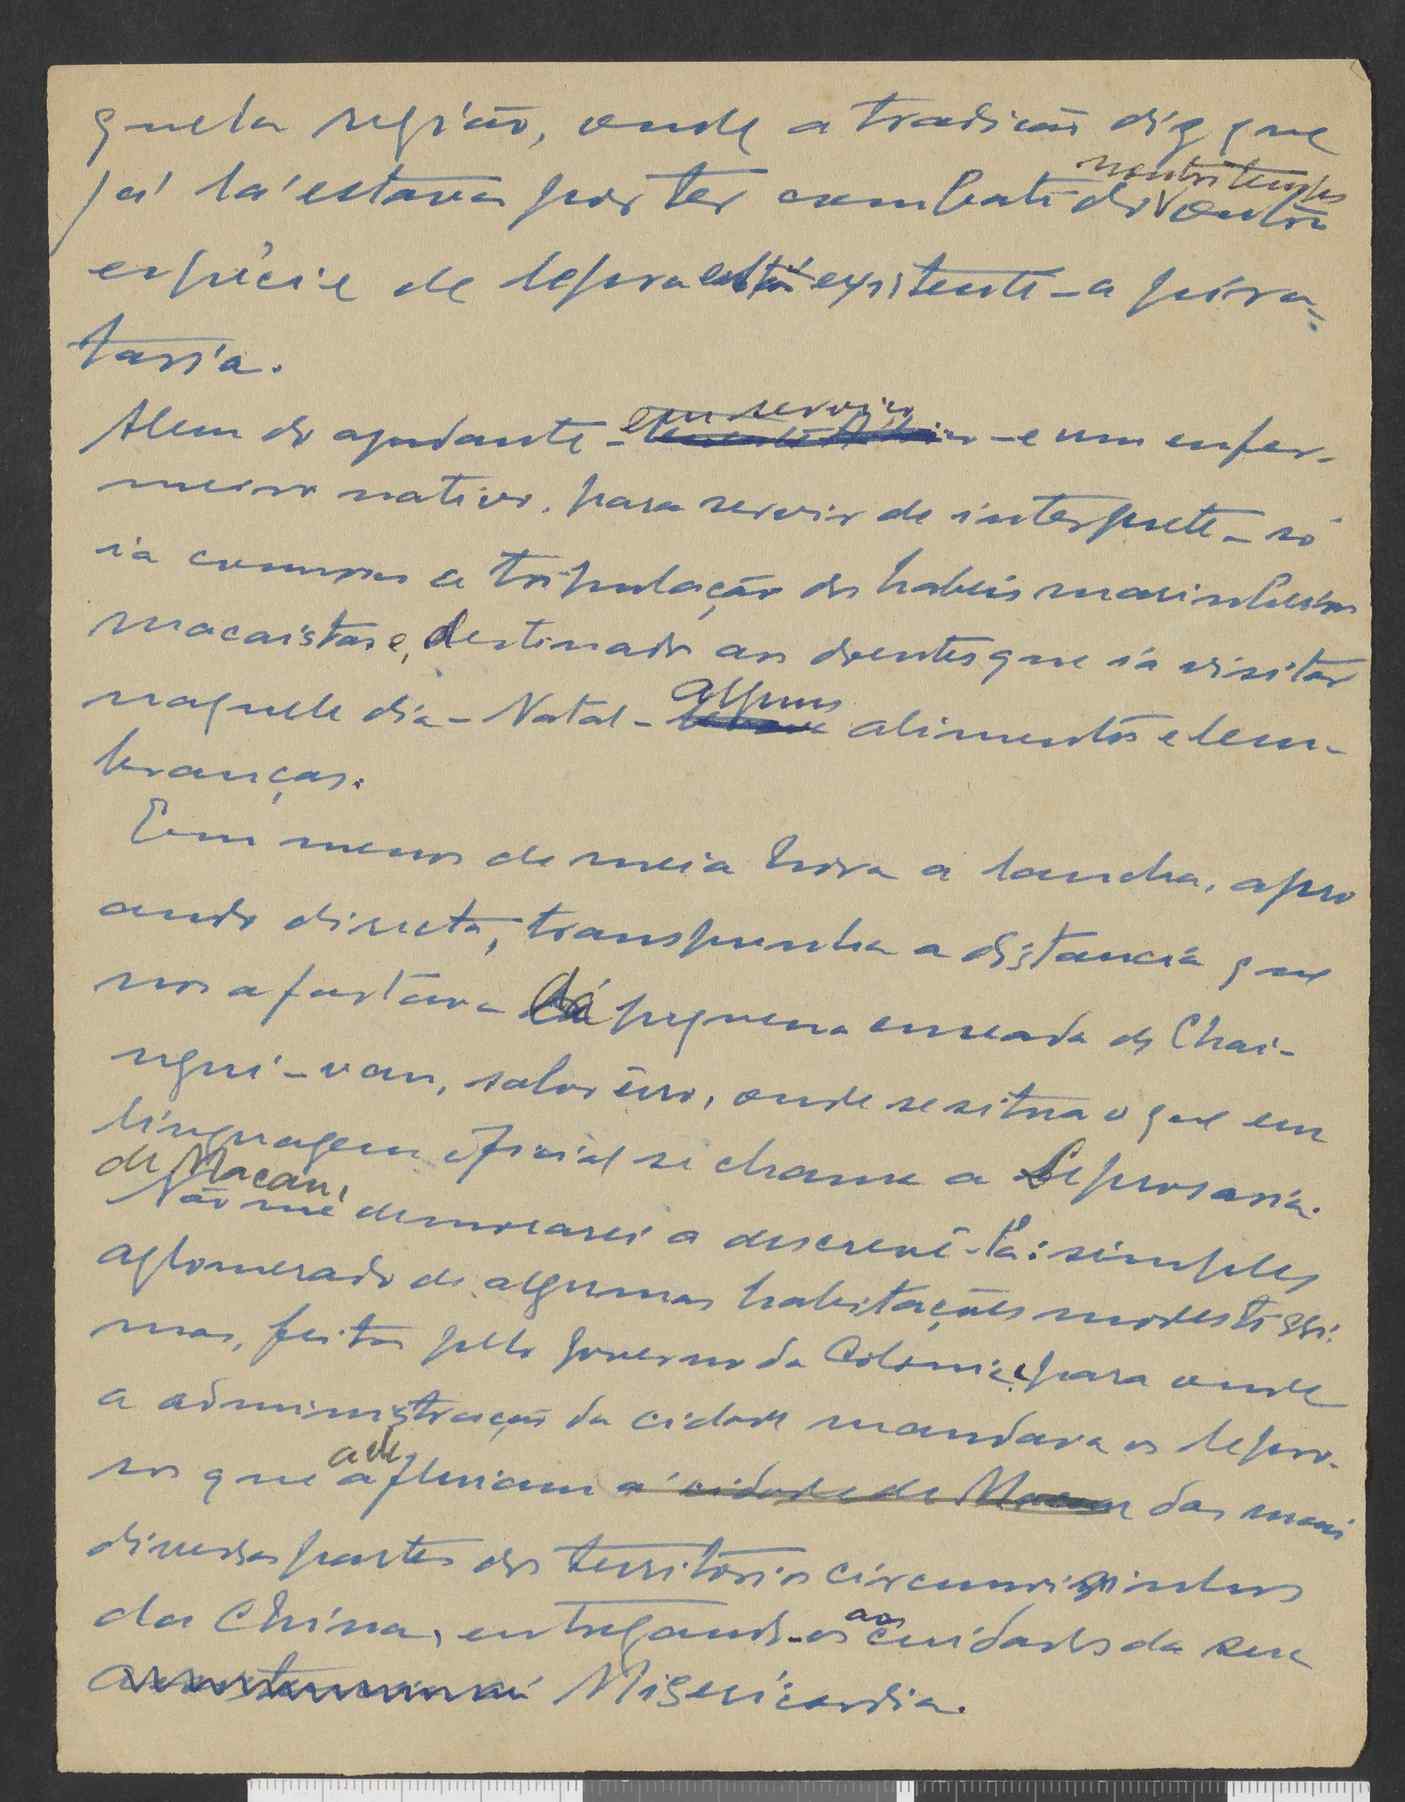 quela região, onde a tradição diz que
já lá estava por ter combatido noutros tempos outra
espécie de lepra existente - a pira-
taria.
Alem do ajudante - em serviço - e um enfer-
meiro nativo, para servir de interprete - só
ia comnosco a tripulação de habeis marinheiros
macaistas e, destinado aos doentes que ia visitar
naquele dia - Natal - alguns alimentos e lem-
branças.
Em menos de meia hora a lancha, apro
ando directa, transpunha a distancia que
nos afastava da pequena enseada de Chai-
ngui-van, salvo êrro, onde se situa o que em
linguagem oficial se chama a Leprosaria
de Macau.
Não me demorarei a descrevê-la: simples
aglomerado de algumas habitações modestissi-
mas, feitas pelo governo da Colonia e para onde
a administração da cidade mandava os lepro-
sos que ali afluiam á cidade de Macau das mais
diversas partes dos territorios circumvisinhos
da China, entregando-os aos cuidados da sua
Misericordia.